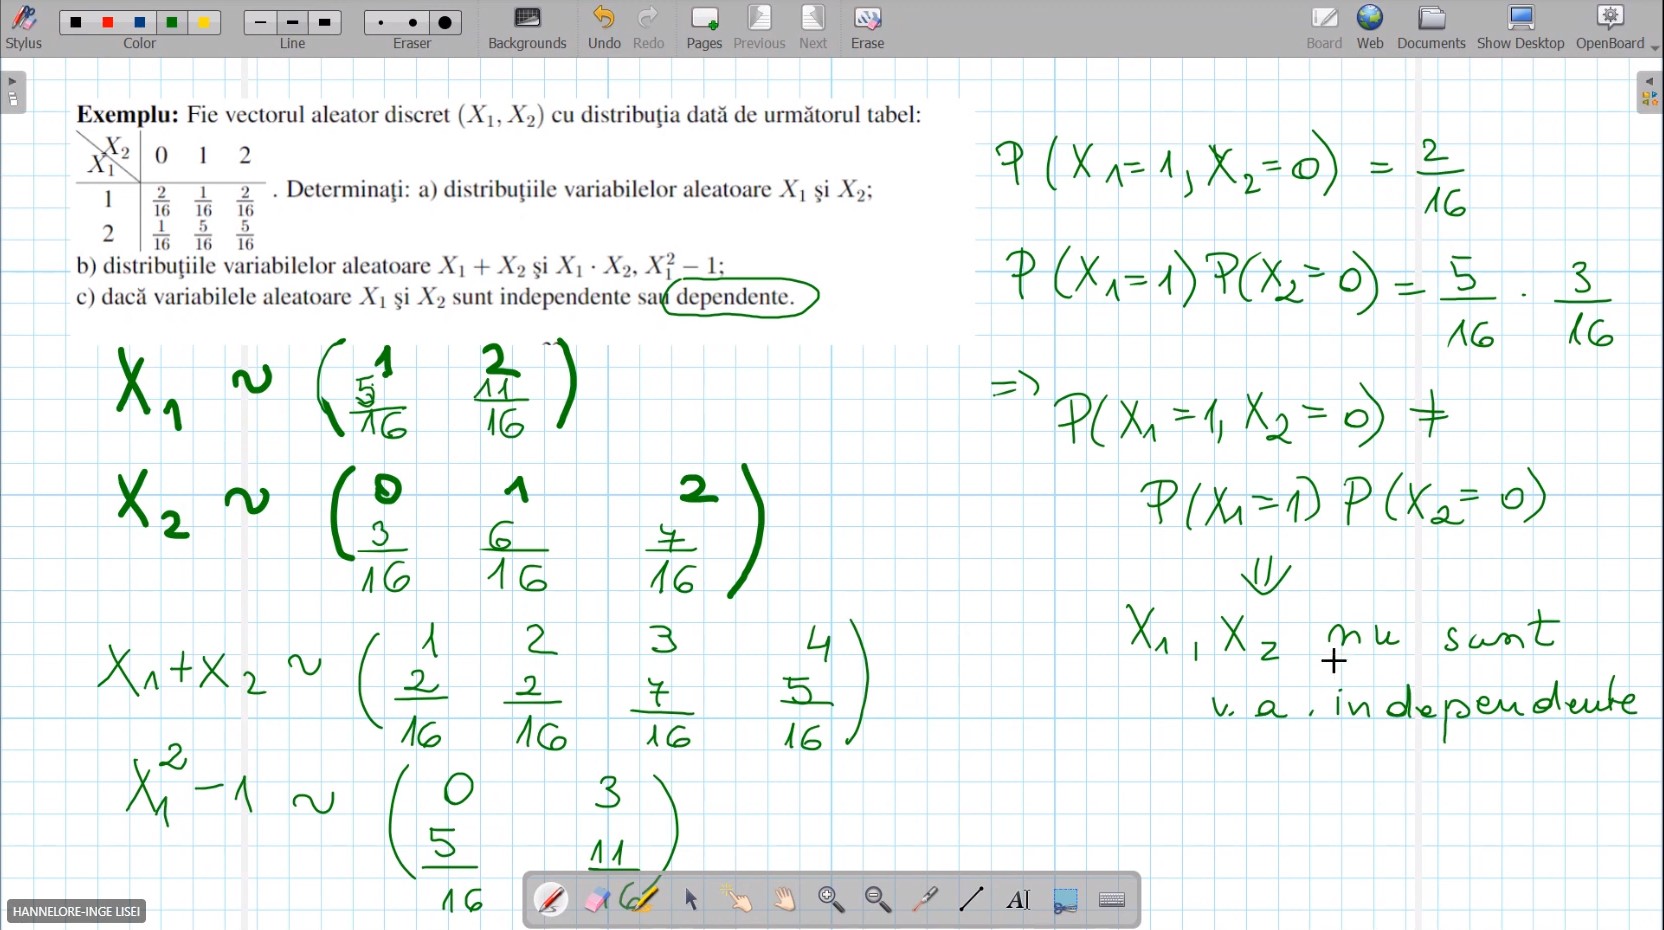 Stylus Color Line Eraser Backgrounds Undo Redo Pages Previous Next Erase Board Web Documents Show Desktop OpenBoard
Exemplu: Fie vectorul aleator discret (X₁, X₂) cu distribuția dată de următorul tabel:
X₂ 0 1 2
X₁
1 2/16 1/16 2/16
2 1/16 5/16 5/16
. Determinați: a) distribuțiile variabilelor aleatoare X₁ și X₂;
b) distribuțiile variabilelor aleatoare X₁ + X₂ și X₁ · X₂, X₁² − 1;
c) dacă variabilele aleatoare X₁ și X₂ sunt independente sau dependente.
X₁ ~ ( 1 2
5/16 11/16 )
X₂ ~ ( 0 1 2
3/16 6/16 7/16 )
X₁+X₂ ~ ( 1 2 3 4
2/16 2/16 7/16 5/16 )
X₁² − 1 ~ ( 0 3
5/16 11/16 )
P (X₁=1, X₂=0) = 2/16
P (X₁=1) P(X₂=0) = 5/16 · 3/16
=> P(X₁=1, X₂=0) ≠
P(X₁=1) P(X₂=0)
⇓
X₁, X₂ nu sunt
v.a. independente
HANNELORE-INGE LISEI
AI